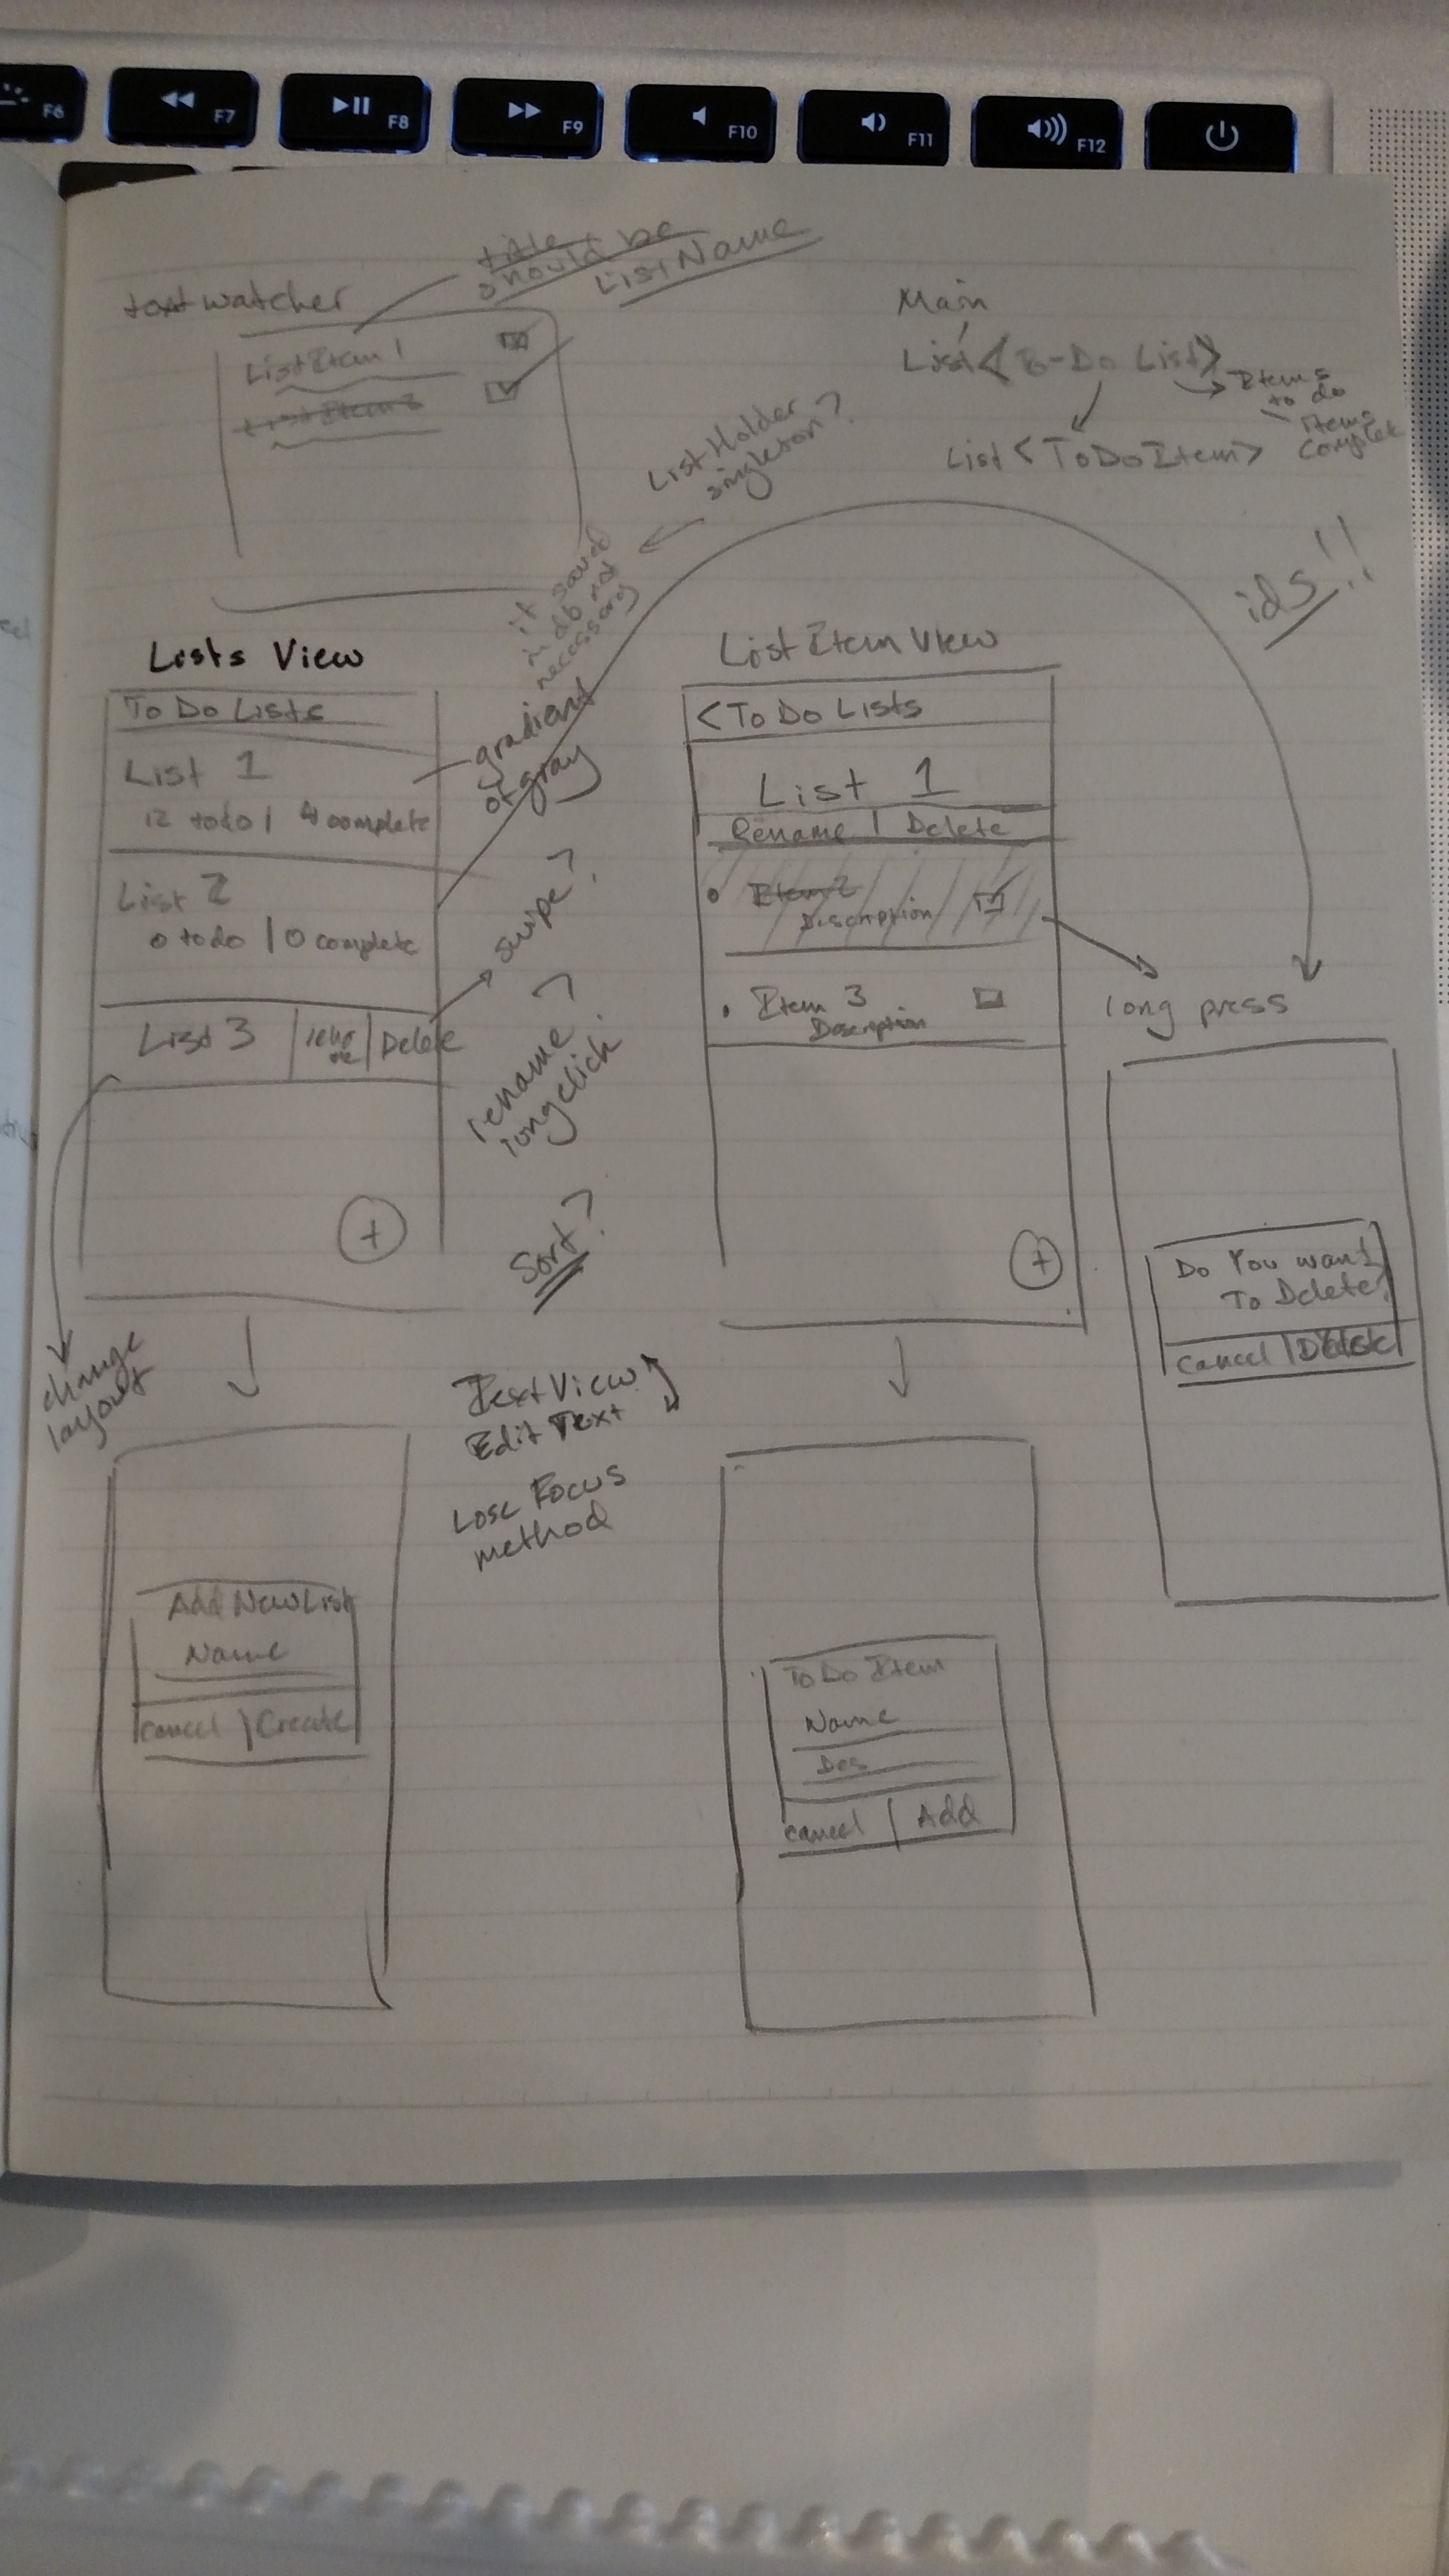 F6
F7
F8
F9
F10
F11
F12
text watcher
title
should be
List Name
List Item 1
List Item 2
Main
List <To-Do List>
Items
to do
Items
Complete
List <ToDoItem>
List Holder
singleton?
if saved
in db not
necessary
ids!!
Lists View
To Do Lists
List 1
12 todo | 4 complete
List 2
0 todo | 0 complete
List 3 | rena
me | Delete
+
gradient
of gray
swipe?
rename?
longclick
Sort?
change
layout
List Item View
<To Do Lists
List 1
Rename | Delete
Item 2
Description
Item 3
Description
+
long press
Do You want
To Delete?
Cancel | Delete
TextView
Edit Text
Lose Focus
method
Add New List
Name
Cancel | Create
To Do Item
Name
Des
Cancel | Add